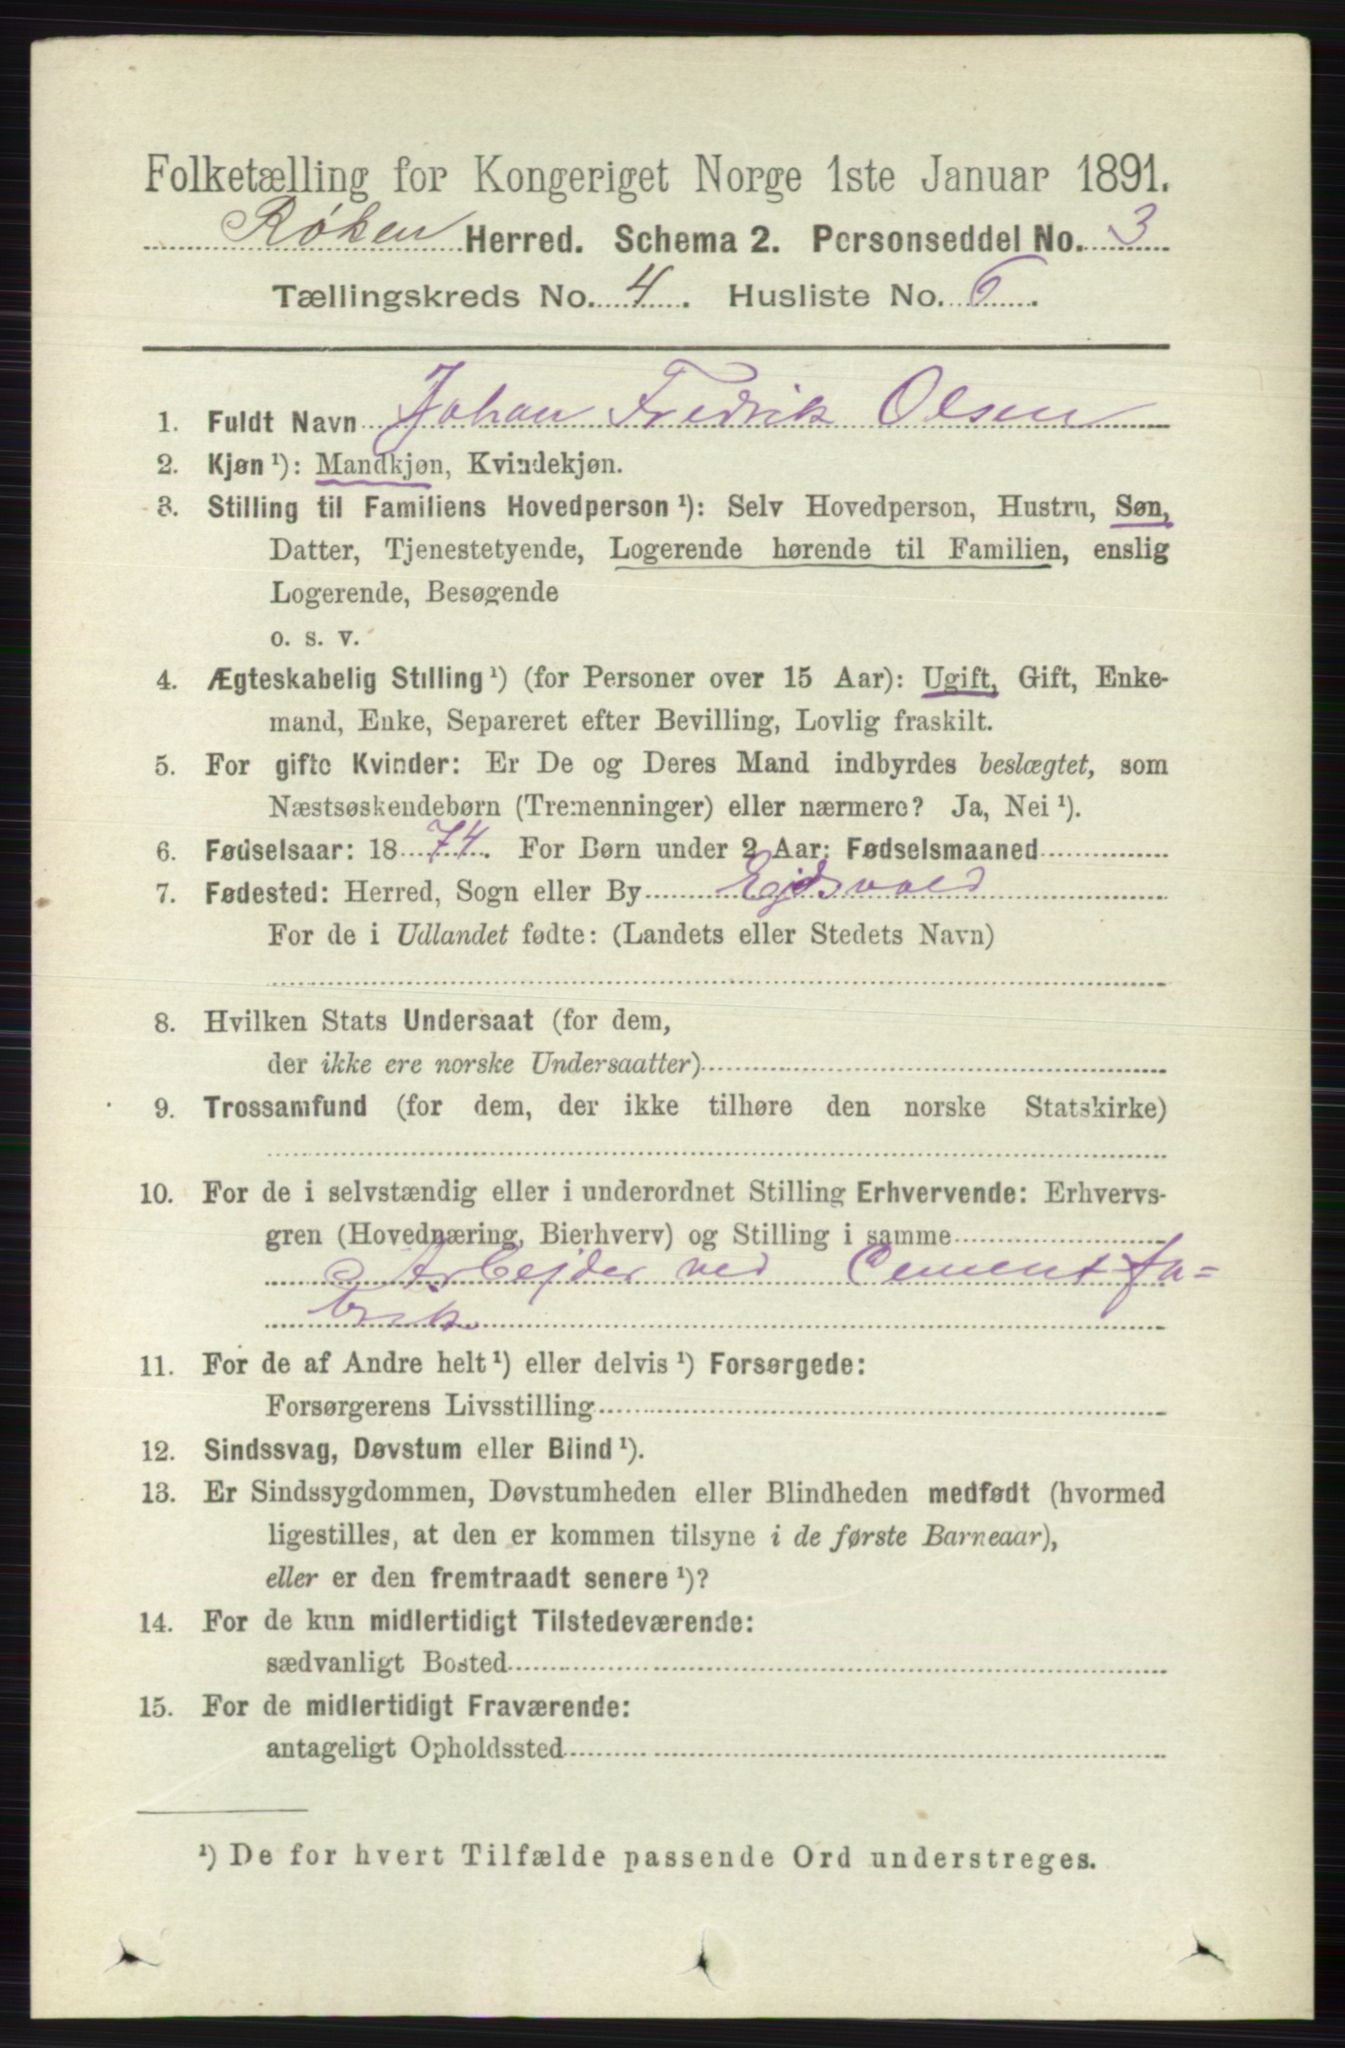 Folketælling for Kongeriget Norge 1ste Januar 1891.
Røken Herred. Schema 2. Personseddel No. 3
Tællingskreds No. 4. Husliste No. 6.
1. Fuldt Navn Johan Fredrik Olsen
2. Kjøn ¹): Mandkjøn, Kvindekjøn.
3. Stilling til Familiens Hovedperson ¹): Selv Hovedperson, Hustru, Søn,
Datter, Tjenestetyende, Logerende hørende til Familien, enslig
Logerende, Besøgende
o. s. v.
4. Ægteskabelig Stilling ¹) (for Personer over 15 Aar): Ugift, Gift, Enke-
mand, Enke, Separeret efter Bevilling, Lovlig fraskilt.
5. For gifte Kvinder: Er De og Deres Mand indbyrdes beslægtet, som
Næstsøskendebørn (Tremenninger) eller nærmere? Ja, Nei ¹).
6. Fødselsaar: 1874. For Børn under 2 Aar: Fødselsmaaned
7. Fødested: Herred, Sogn eller By Ejdsvold
For de i Udlandet fødte: (Landets eller Stedets Navn)
8. Hvilken Stats Undersaat (for dem,
der ikke ere norske Undersaatter)
9. Trossamfund (for dem, der ikke tilhøre den norske Statskirke)
10. For de i selvstændig eller i underordnet Stilling Erhvervende: Erhvervs-
gren (Hovednæring, Bierhverv) og Stilling i samme
Arbejder ved Cementfa=
brik.
11. For de af Andre helt ¹) eller delvis ¹) Forsørgede:
Forsørgerens Livsstilling
12. Sindssvag, Døvstum eller Blind ¹).
13. Er Sindssygdommen, Døvstumheden eller Blindheden medfødt (hvormed
ligestilles, at den er kommen tilsyne i de første Barneaar),
eller er den fremtraadt senere ¹)?
14. For de kun midlertidigt Tilstedeværende:
sædvanligt Bosted
15. For de midlertidigt Fraværende:
antageligt Opholdssted
¹) De for hvert Tilfælde passende Ord understreges.